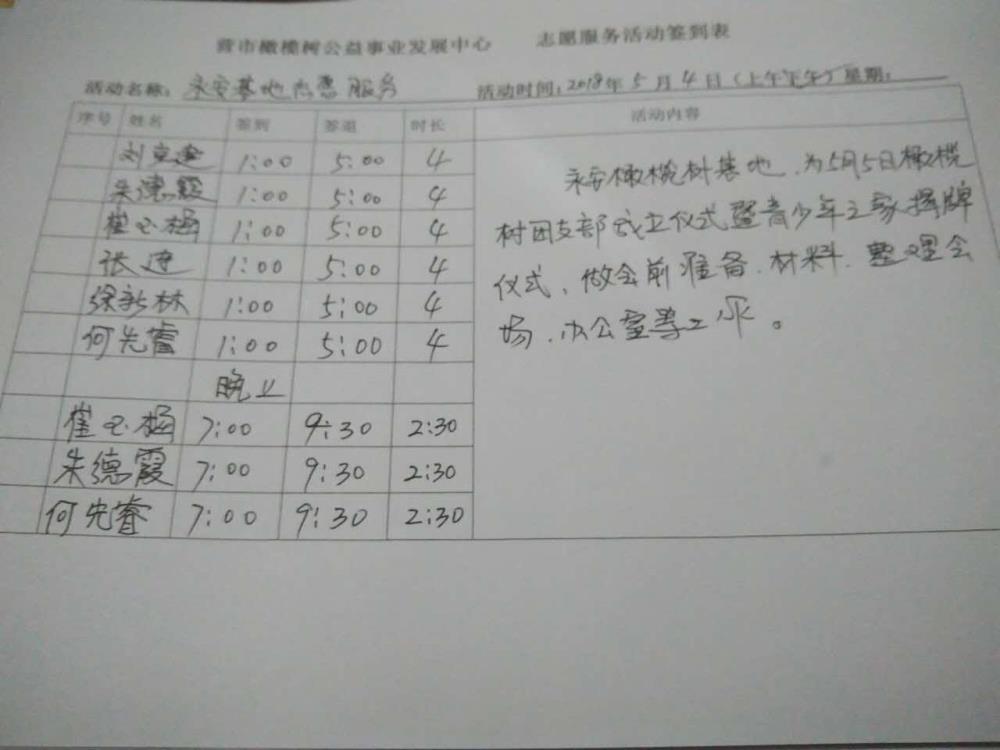 营市橄榄树公益事业发展中心 志愿服务活动签到表
活动名称: 永安基地志愿服务 活动时间:2018年5月4日(上午下午)星期:
序号 姓名 签到 签退 时长 活动内容
刘 1:00 5:00 4
朱德霞 1:00 5:00 4
崔玉杨 1:00 5:00 4
张 1:00 5:00 4
徐新林 1:00 5:00 4
何先睿 1:00 5:00 4
晚上
崔玉杨 7:00 9:30 2:30
朱德霞 7:00 9:30 2:30
何先睿 7:00 9:30 2:30
永安橄榄树基地、为5月5日橄榄
树团支部成立仪式暨青少年之家揭牌
仪式、做会前准备、材料、整理会
场、办公室等工作。